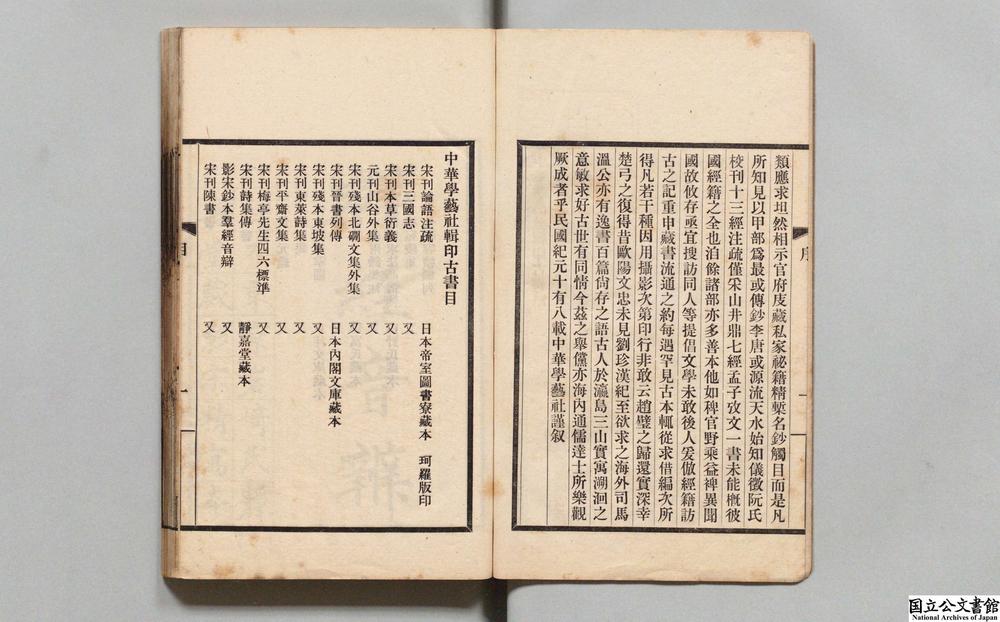 類應求坦然相示官府庋藏私家祕籍精槧名鈔觸目而是凡
所知見以甲部爲最或傳鈔李唐或源流天水始知儀徵阮氏
校刊十三經注疏僅采山井鼎七經孟子攷文一書未能槪彼
國經籍之全也洎餘諸部亦多善本他如稗官野乘益裨異聞
國故攸存亟宜搜訪同人等提倡文學未敢後人爰倣經籍訪
古之記重申藏書流通之約每遇罕見古本輒從求借編次所
得凡若干種因用攝影次第印行非敢云趙璧之歸還實深幸
楚弓之復得昔歐陽文忠未見劉珍漢紀至欲求之海外司馬
溫公亦有逸書百篇尙存之語古人於瀛島三山實寓溯洄之
意敏求好古世有同情今茲之舉儻亦海內通儒達士所樂觀
厥成者乎民國紀元十有八載中華學藝社謹叙
序
一
中華學藝社輯印古書目
宋刊論語注疏 日本帝室圖書寮藏本 珂羅版印
宋刊三國志 又
宋刊本草衍義 又
元刊山谷外集 又
宋刊殘本北磵文集外集 又
宋刊晉書列傳 日本內閣文庫藏本
宋刊殘本東坡集 又
宋刊東萊詩集 又
宋刊平齋文集 又
宋刊梅亭先生四六標準 又
宋刊詩集傳 靜嘉堂藏本
影宋鈔本羣經音辯 又
宋刊陳書 又
目
一
国立公文書館
National Archives of Japan